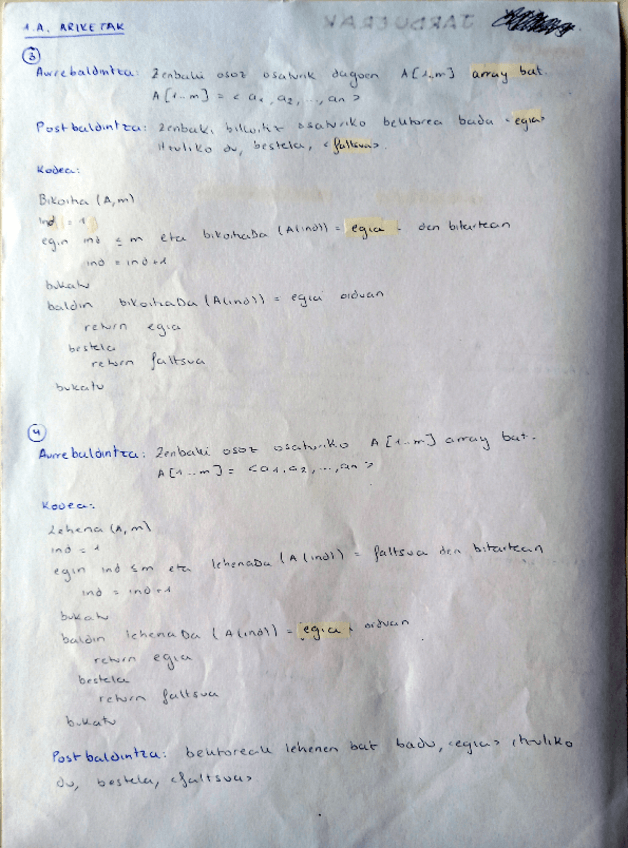 1.A. ARIKETAK
JARDUERAK
3
Aurrebaldintza: Zenbaki osoz osaturik dagoen A[1..m] array bat.
A[1...m] = <a1, a2, ..., an>
Postbaldintza: Zenbaki bikoitiz osaturiko bektorea bada <egia>
itzuliko du, bestela, <faltsua>.
Kodea:
Bikoitia (A,m)
ind = 1
egin ind ≤ m eta bikoitiaDa (A(ind)) = egia den bitartean
ind = ind+1
bukatu
baldin bikoitiaDa (A(ind)) = egia orduan
return egia
bestela
return faltsua
bukatu
4
Aurrebaldintza: Zenbaki osoz osaturiko A[1...m] array bat.
A[1...m] = <a1, a2, ..., an>
Kodea:
Lehena (A,m)
ind = 1
egin ind ≤ m eta lehenaDa (A(ind)) = faltsua den bitartean
ind = ind+1
bukatu
baldin lehenaDa (A(ind)) = egia orduan
return egia
bestela
return faltsua
bukatu
Postbaldintza: bektoreak lehenen bat badu, <egia> itzuliko
du, bestela, <faltsua>